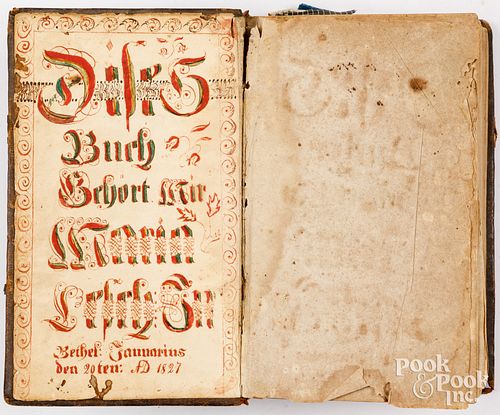 Dises
Buch
Gehört Mir
Maria
Lesch: In
Bethel: Januarius
den 20ten: AD 1827
Pook
& Pook
Inc.